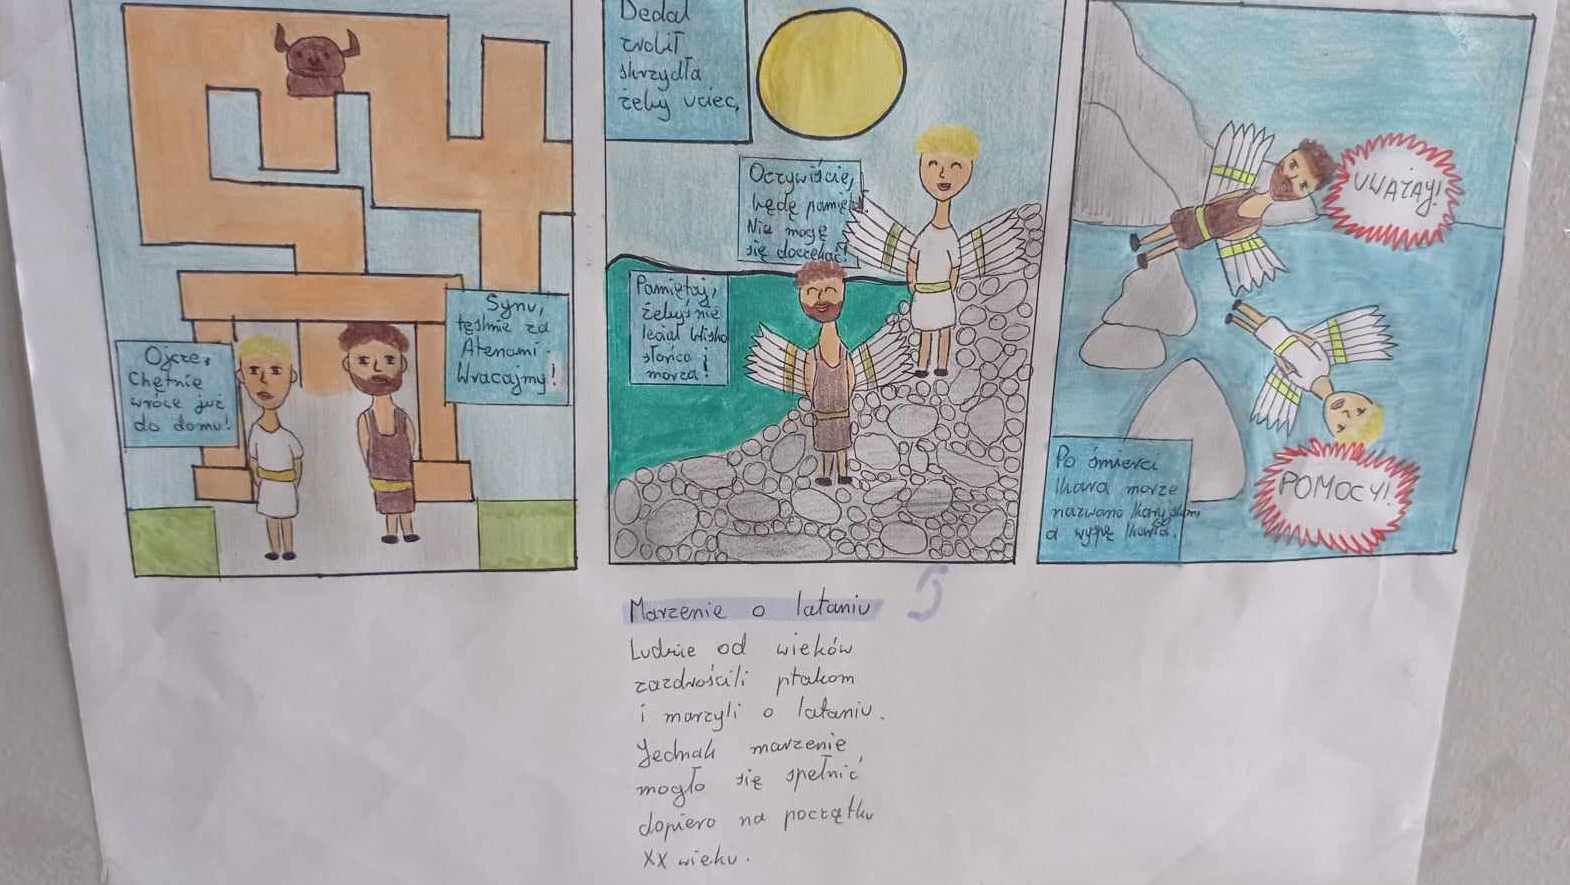 Ojcze,
Chętnie
wrócę już
do domu!
Synu,
tęsknię za
Atenami.
Wracajmy!
Dedal
zrobił
skrzydła
żeby uciec,
Oczywiście,
będę
Nie mogę
się doczekać!
Pamiętaj,
żebyś nie
leciał blisko
słońca i
morza!
UWAŻAJ!
POMOCY!
Po śmierci
Ikara morze
nazwano
a wyspę Ikaria.
5
Marzenie o lataniu
Ludzie od wieków
zazdrościli ptakom
i marzyli o lataniu.
Jednak marzenie
mogło się spełnić
dopiero na początku
XX wieku.